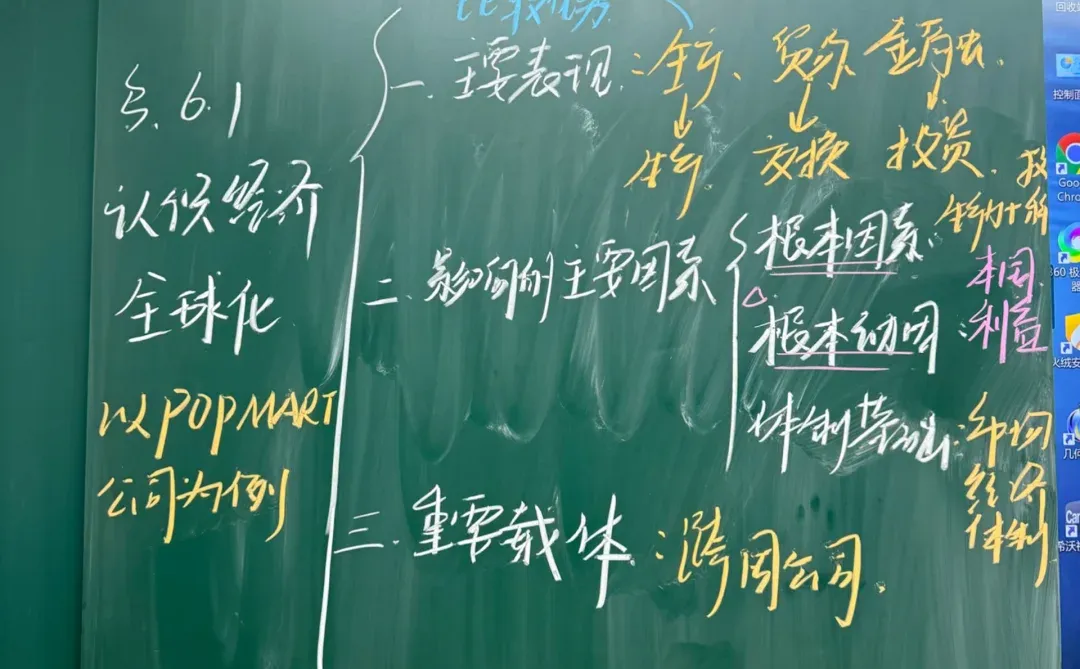 比较优势
§6.1
认识经济
全球化
以POPMART
公司为例
一.主要表现:生产、贸易 金融.
生产. 交换 投资.
二.影响的主要因素
根本因素:
生产力十科
根本动因:本国利益
体制基础:市场经济体制
三.重要载体:跨国公司.
控制面
Goo
Chro
360 极
器
火绒安
几何
希沃